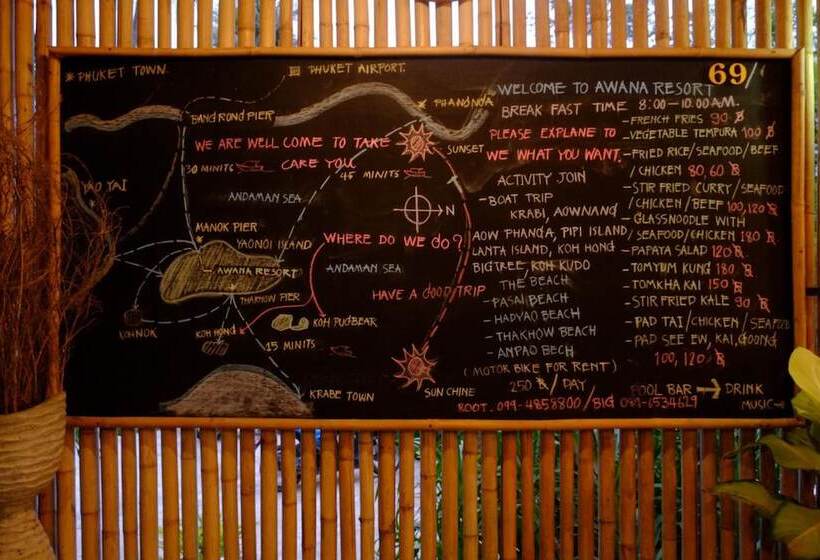 69/
* PHUKET TOWN.
PHUKET AIRPORT.
BAND ROND PIER
PHANDNGA
WE ARE WELL COME TO TAKE
CARE YOU
SUNSET
30 MINITS
45 MINITS
YAO YAI
ANDAMAN SEA
N
MANOK PIER
YAONOI ISLAND
WHERE DO WE do?
AWANA RESORT
ANDAMAN SEA
THAKHOW PIER
HAVE A GOOD TRIP
KOHNOK
KOH NONG
KOH PUDBEAR
15 MINITS
KRABE TOWN
SUN CHINE
WELCOME TO AWANA RESORT
BREAK FAST TIME 8:00-10.00 A.M.
PLEASE EXPLANE TO
WE WHAT YOU WANT.
ACTIVITY JOIN
-BOAT TRIP
KRABI, AOWNANG
AOW PHANGA, PIPI ISLAND
LANTA ISLAND, KOH HONG
BIGTREE/KOH KUDO
THE BEACH
- PASAI BEACH
- HADYAO BEACH
- THAKHOW BEACH
- ANPAO BECH
(MOTOR BIKE FOR RENT)
250 ฿/DAY
ROOT. 099-4858800/BIG 089-6534629
-FRENCH FRIES 90 ฿
-VEGETABLE TEMPURA 100 ฿
-FRIED RICE/SEAFOOD/BEEF
/CHICKEN 80,60 ฿
-STIR FRIED CURRY/SEAFOOD
/CHICKEN/BEEF 100,120 ฿
-GLASSNOODLE WITH
/SEAFOOD/CHICKEN 180 ฿
-PAPAYA SALAD 120 ฿
-TOMYUM KUNG 180 ฿
-TOMKHA KAI 150 ฿
-STIR FRIED KALE 90 ฿
-PAD TAI/CHICKEN/SEAFOOD
-PAD SEE EW, KAI, GOONG
100, 120 ฿
POOL BAR → DRINK
MUSIC